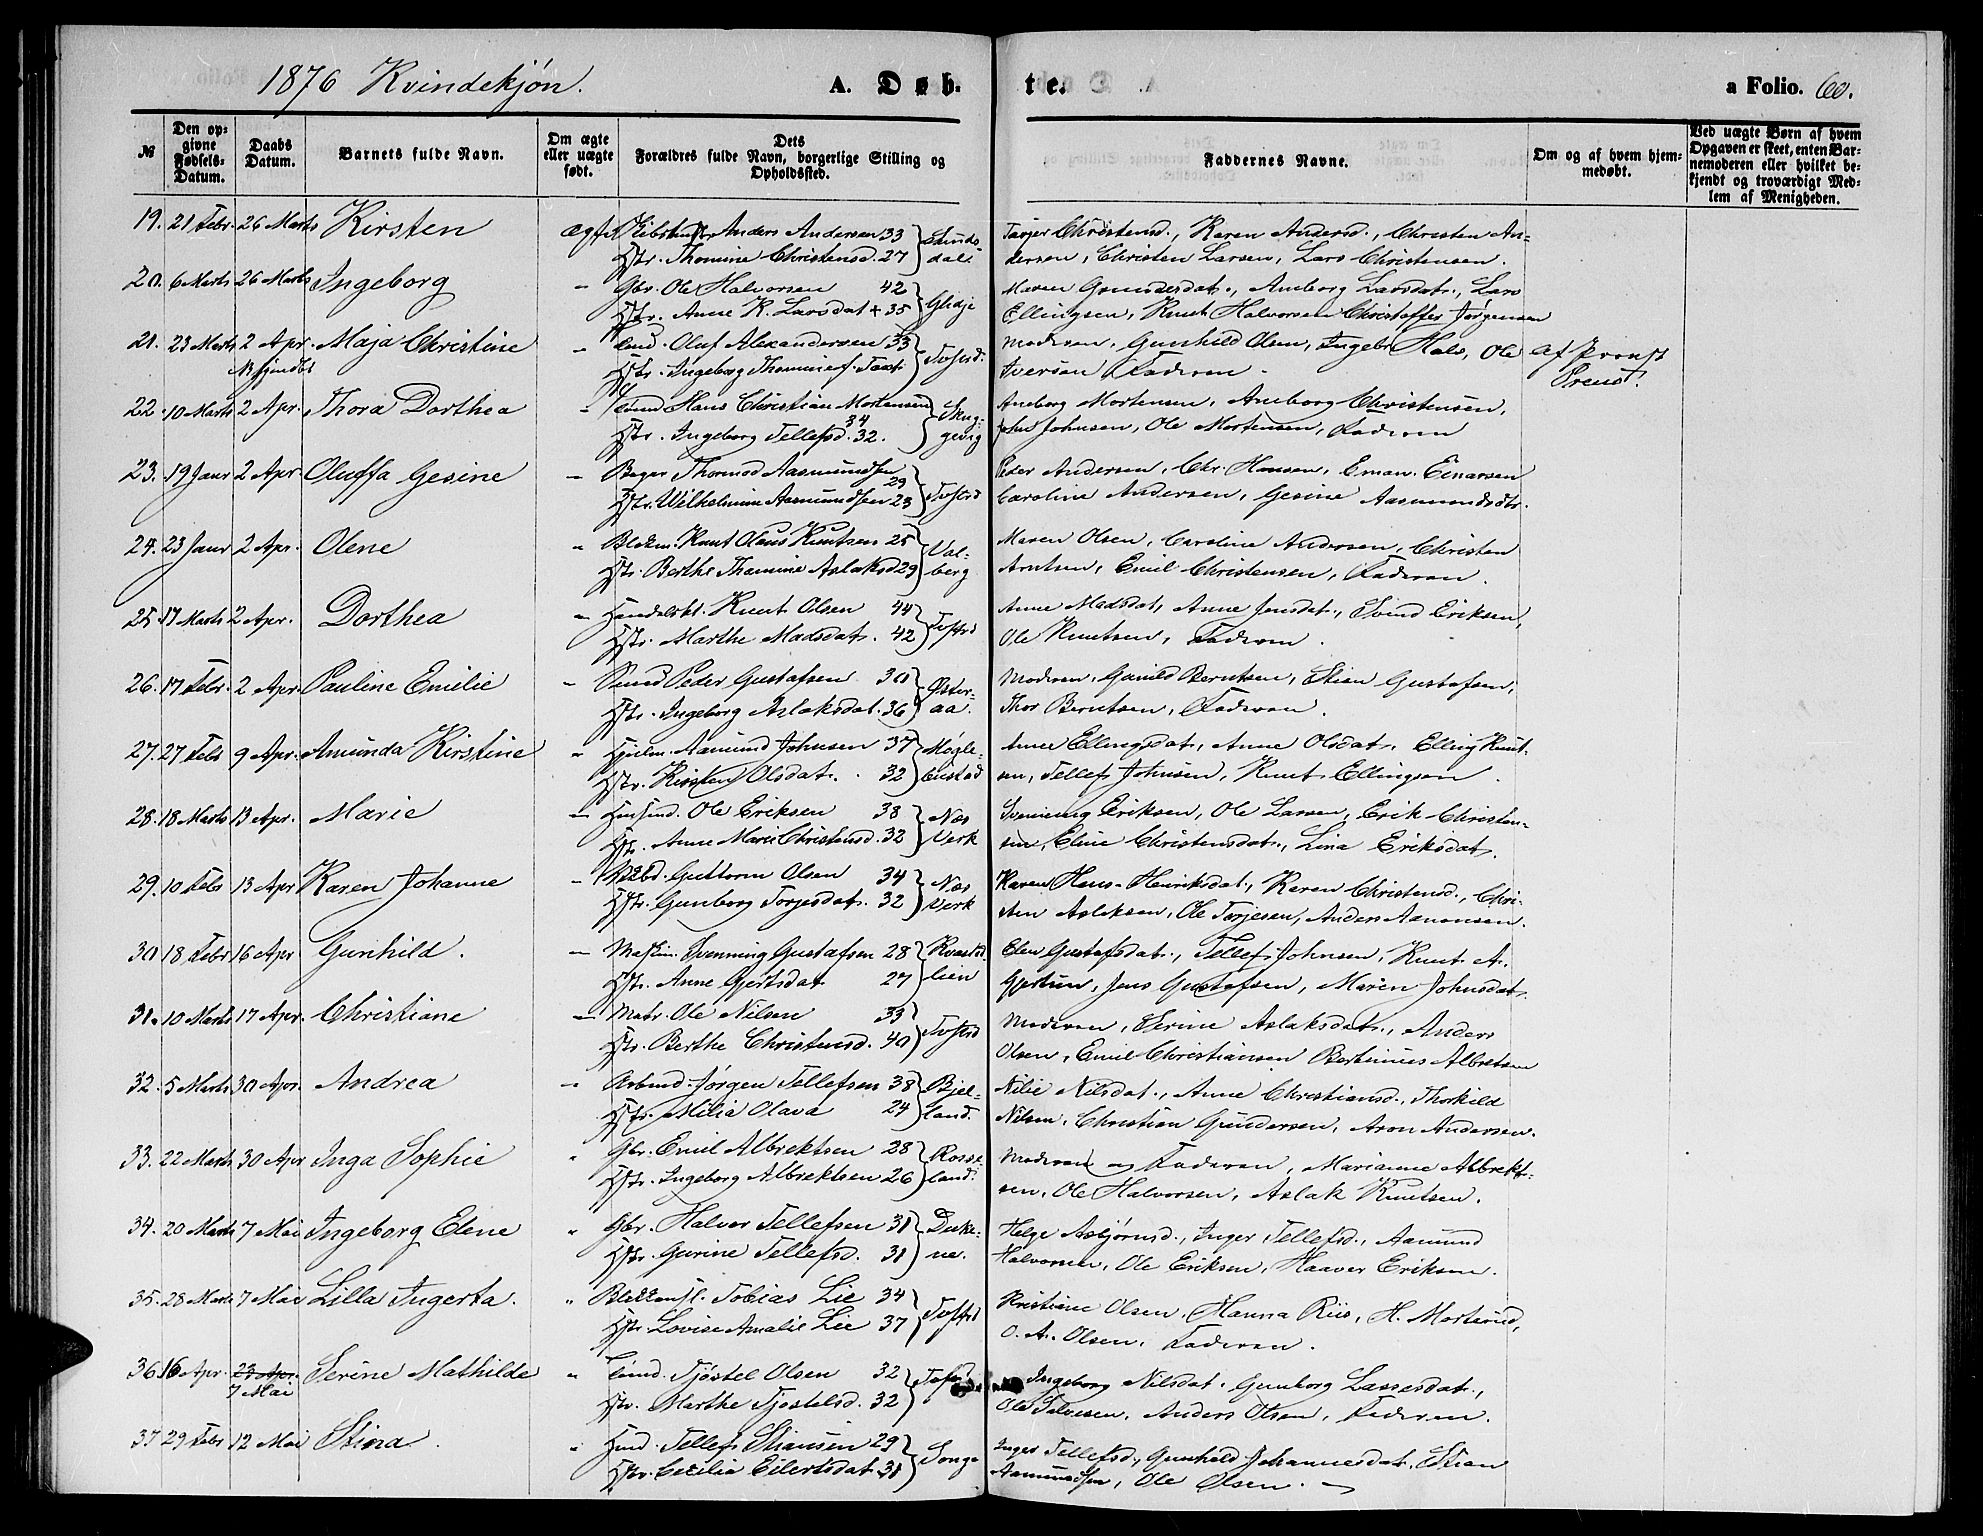 1876 Kvindekjøn. A. Døb- te. a Folio. 60.
№ Den opgivne Fødsels-Datum. Daabs Datum. Barnets fulde Navn. Om ægte eller uægte født. Dets Forældres fulde Navn, borgerlige Stilling og Opholdssted. Faddernes Navne. Om og af hvem hjemmedøbt. Ved uægte Børn af hvem Opgaven er skeet, enten Barnemoderen eller hvilket bekjendt og troværdigt Medlem af Menigheden.
19. 21 Febr. 26 Marts Kirsten ægte Anders Andersen 33 Sundsdal. Tarjer Christensd., Karen Andersd., Christen An-
Hstr. Thomine Christensd. 27 dersen, Christen Larsen, Lars Christensen.
20. 6 Marts 26 Marts Ingeborg " Gbr. Ole Halvorsen 42 Glidje Maren Gundersdat., Anborg Larsdat., Lars
Hstr. Anne K. Larsdat + 35 Ellingsen, Knut Halvorsen Christoffer Jørgensen
21. 23 Marts 2 Apr. Maja Christine " Oluf Alexandersen 33 Tvestrd. Moderen, Gunhild Olsen, Ingebr. Hals, Ole af Provst
Hjemdbt Hstr. Ingeborg Thomine f. Taxt Iversen Faderen. Preust.
22. 10 Marts 2 Apr. Thora Dorthea " Hans Christian Mortensen 34 Skuggevig Aneborg Mortensen, Aneborg Christensen,
Hstr. Ingeborg Tellefsd. 32. John Johnsen, Ole Mortensen, Faderen
23. 19 Janr 2 Apr Oluffa Gesine " Bager Thormod Aasmundsen 29 Tvestrd Peder Andersen, Chr. Hansen, Eman. Einarsen
Hstr. Wilhelmine Aasmundsen 23 Caroline Andersen, Gesine Aasmundsdtr.
24. 23 Janr 2 Apr. Olene " Blokm. Knut Olaus Knutsen 25 Valberg Maren Olsen, Caroline Andersen, Christen
Hstr. Berthe Thomine Aslaksd 29 Arntsen, Emil Christensen, Faderen.
25. 17 Marts 2 Apr. Dorthea " Handelsbt. Knut Olsen 44 Tvestrd Anne Madsdat, Anne Jensdat., Svend Eriksen,
Hstr. Marthe Madsdat. 42 Ole Knutsen, Faderen.
26. 17 Febr. 2 Apr. Pauline Emilie " Smed Peder Gustafsen 30 Østeraa. Moderen, Gunild Berntsen, Stian Gustafsen,
Hstr. Ingeborg Aslaksdat. 36 Thor Berntsen, Faderen.
27. 27 Febr 9 Apr. Amunda Kirstine " Aamund Johnsen 37 Møglebustad Anne Ellingsdat, Anne Olsdat. Elling Knut-
Hstr. Kirsten Olsdat. 32 sen, Tellef Johnsen, Knut Ellingsen.
28. 18 Marts 13 Apr. Marie " Ole Eriksen 38 Næs Verk Svenning Eriksen, Ole Larsen, Erik Christen-
Hstr. Anne Marie Christensd. 32 sen, Eline Christensdat., Lina Eriksdat.
29. 10 Febr 13 Apr Karen Johanne " Guttorm Olsen 34 Næs Verk Karen Hans-Henriksdat., Karen Christensd., Chri-
Hstr. Gunborg Torjesdat. 32 sten Aslaksen, Ole Torjesen, Anders Aanonsen.
30. 18 Febr 16 Apr Gunhild. " Svenning Gustafsen 28 lien Elen Gustafsdat., Tellef Johnsen, Knut A.
Hstr. Anne Gjertsdat 27 Gjertsen, Jens Gustafsen, Maren Johnsdat.
31. 10 Marts 17 Apr. Christiane " Matr. Ole Nilsen 33 Tvestrd Moderen, Serine Aslaksdat., Anders
Hstr. Berthe Christensd. 40 Olsen, Emil Christiansen Bertinius Albretsen
32. 5 Marts 30 Apr. Andrea " Arbmd. Jørgen Tellefsen 38 Bjelland. Nilie Nilsdat., Anne Christiansd., Thorkild
Hstr. Milia Olava 24 Nilsen, Christian Gundersen, Aron Andersen.
33. 22 Marts 30 Apr Inga Sophie " Gbr. Emil Albrektsen 28 Rosseland. Moderen og Faderen, Marianne Albrekt-
Hstr. Ingeborg Albrektsen 26 sen, Ole Halvorsen, Aslak Knutsen.
34. 20 Marts 7 Mai Ingeborg Elene " Gbr. Halvor Tellefsen 31 Dukene. Helge Asbjørnsd., Inger Tellefsd., Aamund
Hstr. Gurine Tellefsd. 31 Halvorsen, Ole Eriksen, Haaver Eriksen.
35. 28 Marts 7 Mai Lilla Ingerta. " Tobias Lie 34 Tvestrd Kristiane Olsen, Hanna Riis, H. Mortsund,
Hstr Lovise Amalie Lie 37 O. A. Olsen, Faderen.
36. 16 Apr. 23 Apr. Serine Mathilde " Tjøstel Olsen 32 Ingeborg Nilsdat. Gunborg Lassesdat.,
7 Mai Hstr. Marthe Tjøstelsd. 32 Ole Salvesen, Anders Olsen, Faderen.
37 29 Febr 12 Mai Stina. " Hsmd. Tellef Stiansen 29 Songe Inger Tellefsd., Gunhild Johannesdat, Stian
Hstr. Cecilia Eilertsdat 31 Aamundsen, Ole Olsen.